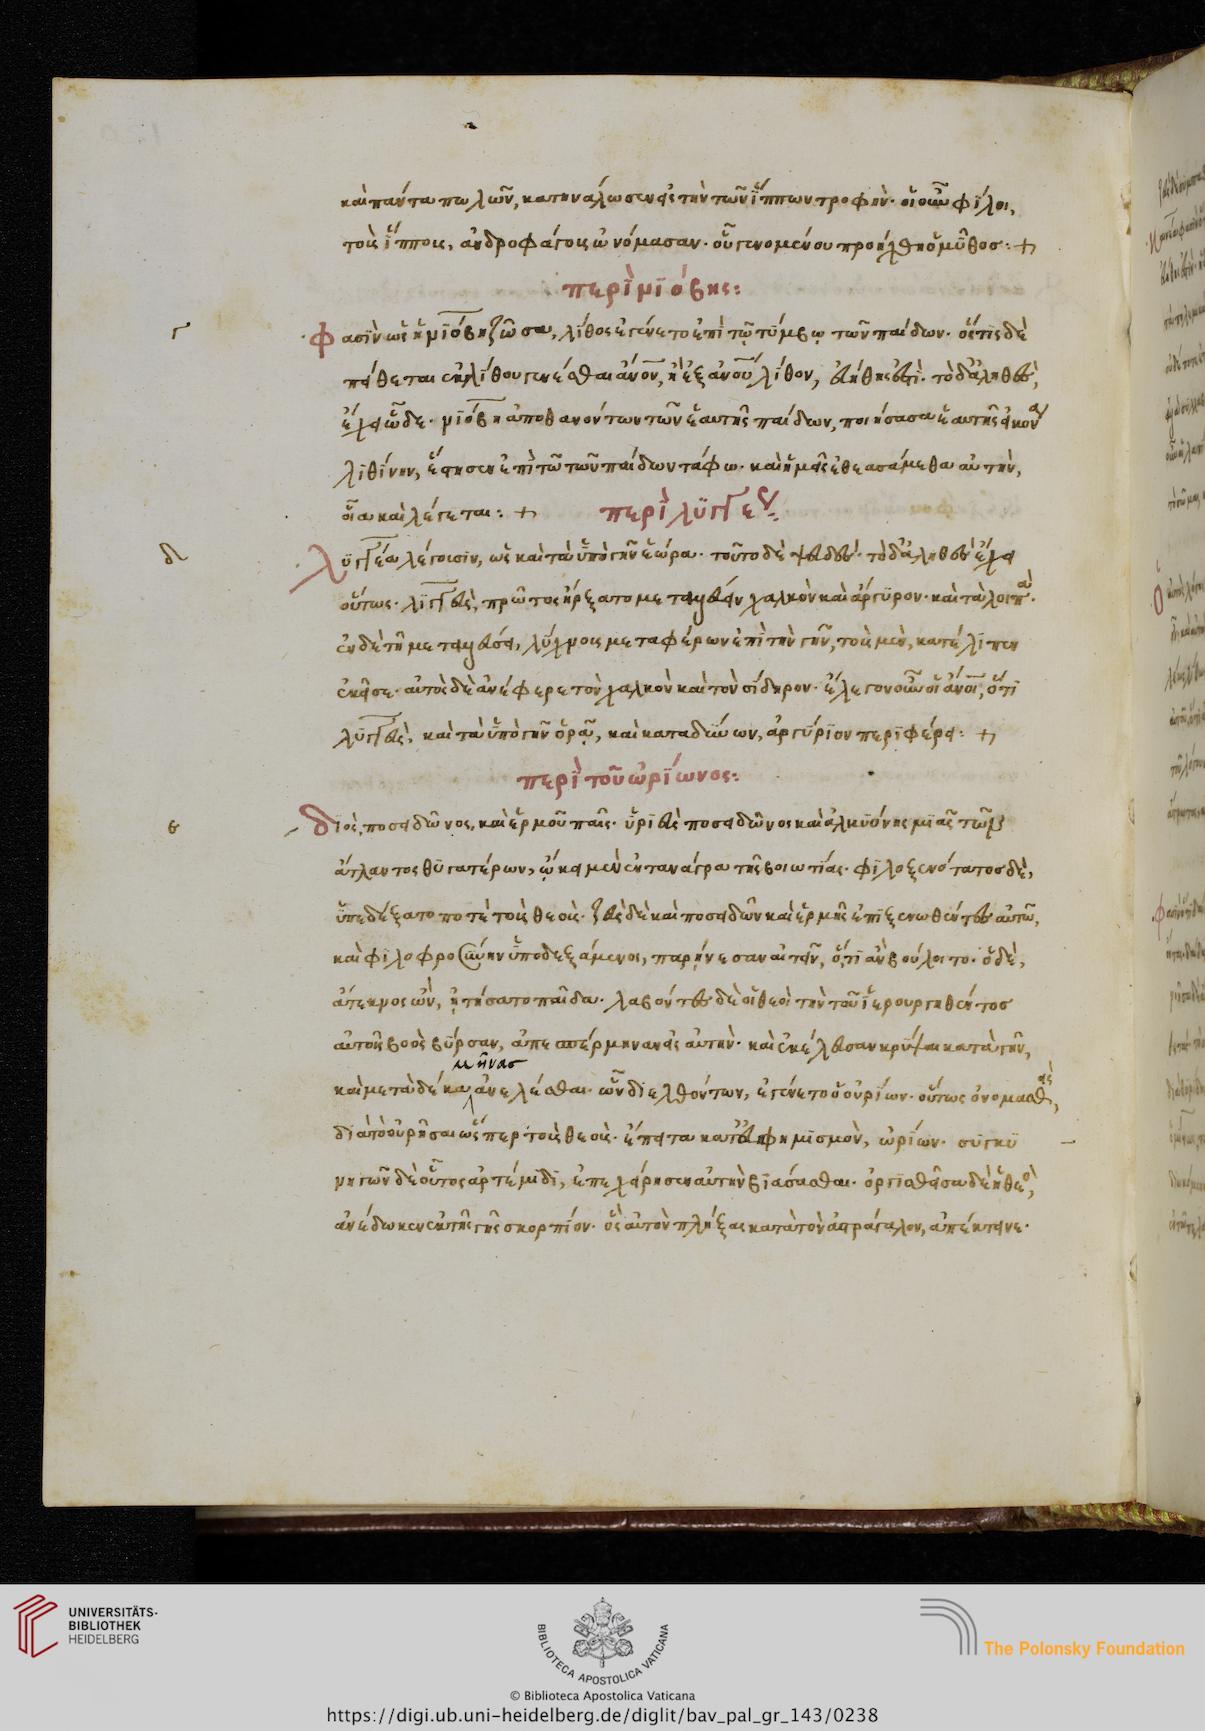 καὶ πάντα πωλῶν, κατηναλωσεν εἰς τὴν τῶν ἵππων τροφήν· οἱ οὖν φίλοι,
τοὺς ἵππους, ἀνδροφάγους ὠνόμασαν· οὗ γενομένου προήχθη ὁ μῦθος:+
περὶ νιόβης:
γ
φασὶν ὡς ἡ νιόβη ζῶσα, λίθος ἐγένετο ἐπὶ τῷ τύμβῳ τῶν παίδων· ὅστις δὲ
πείθεται ἐκ λίθου γενέσθαι ἄνον, ἢ ἐξ ἀνου λίθον, εὐήθης ἐστί· τὸ δ' ἀληθὲς,
ἔχει ὧδε· νιόβη ἀποθανόντων τῶν ἑαυτῆς παίδων, ποιήσασα ἑαυτῆς εἰκόνα
λιθίνην, ἔστησεν ἐπὶ τῶ τῶν παίδων τάφω· καὶ ἡμεῖς ἐθεασάμεθα αὐτὴν,
οἵα καὶ λέγεται:+ περὶ λυγκέως
δ
λυγκέα λέγουσιν, ὡς καὶ τὰ ὑπὸ γῆν ἑώρα· τοῦτο δὲ ψεῦδος· τὸ δ' ἀληθὲς ἔχει
οὕτως· λυγκεὺς, πρῶτος ἤρξατο μεταλλεύειν χαλκὸν καὶ ἄργυρον· καὶ τὰ λοιπά·
ἐν δὲ τῆ μεταλλεύσει, λύχνους μεταφέρων ἐπὶ τὴν γῆν, τοὺς μὲν, κατέλιπεν
ἐκεῖσε· αὐτὸς δὲ ἀνέφερε τὸν χαλκὸν καὶ τὸν σίδηρον· ἔλεγον οὖν οἱ ἄνοι, ὅτι
λυγκεὺς, καὶ τὰ ὑπὸ γῆν ὁρᾷ, καὶ καταδύνων, ἀργύριον περιφέρει:+
περὶ τοῦ ὠρίωνος:
ε
διὸς, ποσειδῶνος, καὶ ἑρμοῦ παῖς· ὑριεὺς ποσειδῶνος καὶ ἀλκυόνης μιᾶς τῶν
ἄτλαντος θυγατέρων, ᾤκει μὲν ἐν ταναγρα τῆς βοιωτίας· φιλοξενότατος δὲ,
ὑπεδέξατο ποτὲ τοὺς θεούς· ζεὺς δὲ καὶ ποσειδῶν καὶ ἑρμῆς ἐπιξενωθέντες αὐτῶ,
καὶ φιλοφροσύνην ὑποδεξάμενοι, παρήνεσαν αἰτεῖν, ὅτι ἂν βούλοιτο· ὁ δὲ,
ἄτεκνος ὢν, ᾐτήσατο παῖδα· λαβόντες δὲ οἱ θεοὶ τὴν τοῦ ἱερουργηθέντος
αὐτοῖς βοὸς βύρσαν, ἀπεσπέρμηναν εἰς αὐτήν· καὶ ἐκέλευσαν κρύψαι κατὰ γῆν,
μῆνας
καὶ μετὰ δέκα ἀνελέσθαι· ὧν διελθόντων, ἐγένετο ὁ οὐρίων· οὕτως ὀνομασθεὶς,
διὰ τὸ οὐρῆσαι ὥσπερ τοὺς θεούς· ἔπειτα κατ' εὐφημισμὸν, ὠρίων· συγκυ
νηγῶν δὲ οὗτος ἀρτέμιδι, ἐπεχείρησεν αὐτὴν βιάσασθαι· ὀργισθεῖσα δὲ ἡ θεὸς,
ἀνέδωκεν ἐκ τῆς γῆς σκορπίον· ὃς αὐτὸν πλήξας κατὰ τὸν ἀστράγαλον, ἀπέκτεινε·
UNIVERSITÄTS-
BIBLIOTHEK
HEIDELBERG
BIBLIOTECA APOSTOLICA VATICANA
The Polonsky Foundation
© Biblioteca Apostolica Vaticana
https://digi.ub.uni-heidelberg.de/diglit/bav_pal_gr_143/0238